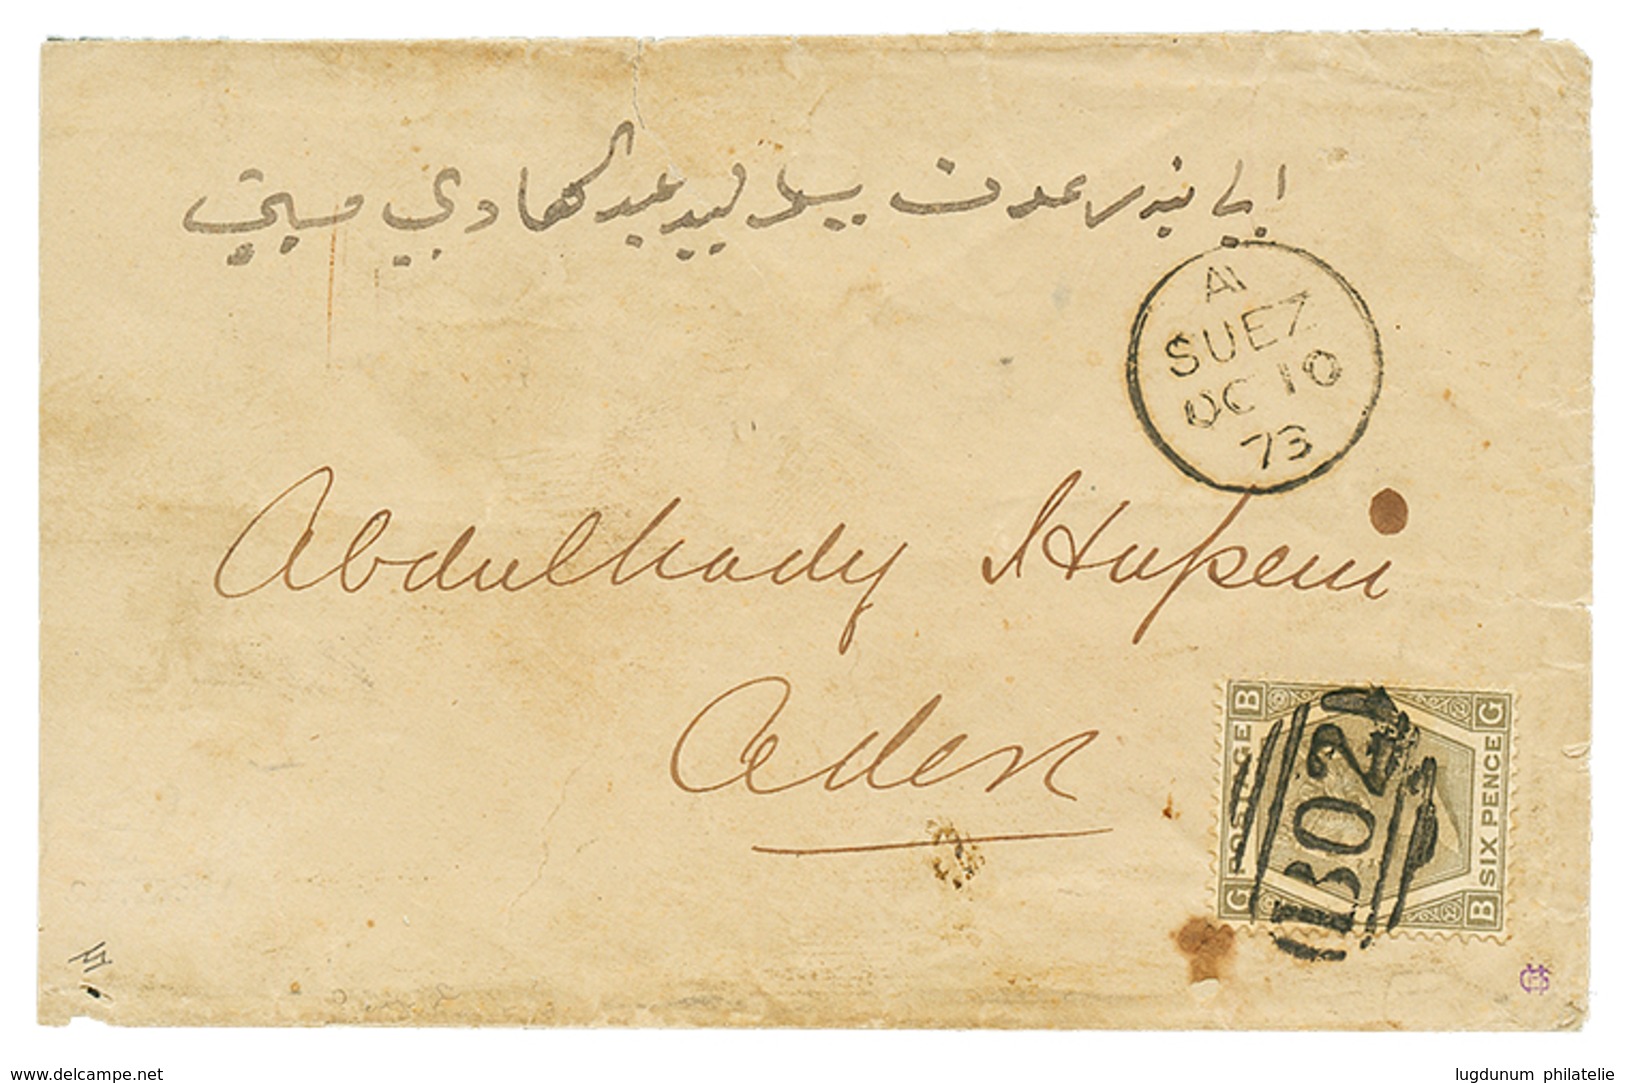 الي بندر عدن بيد السيد عبد الهادي مسيني
A
SUEZ
OC 10
73
Abdulhady Hussein
Aden
B POSTAGE G
B02
G SIX PENCE B
www.delcampe.net
lugdunum philatelie